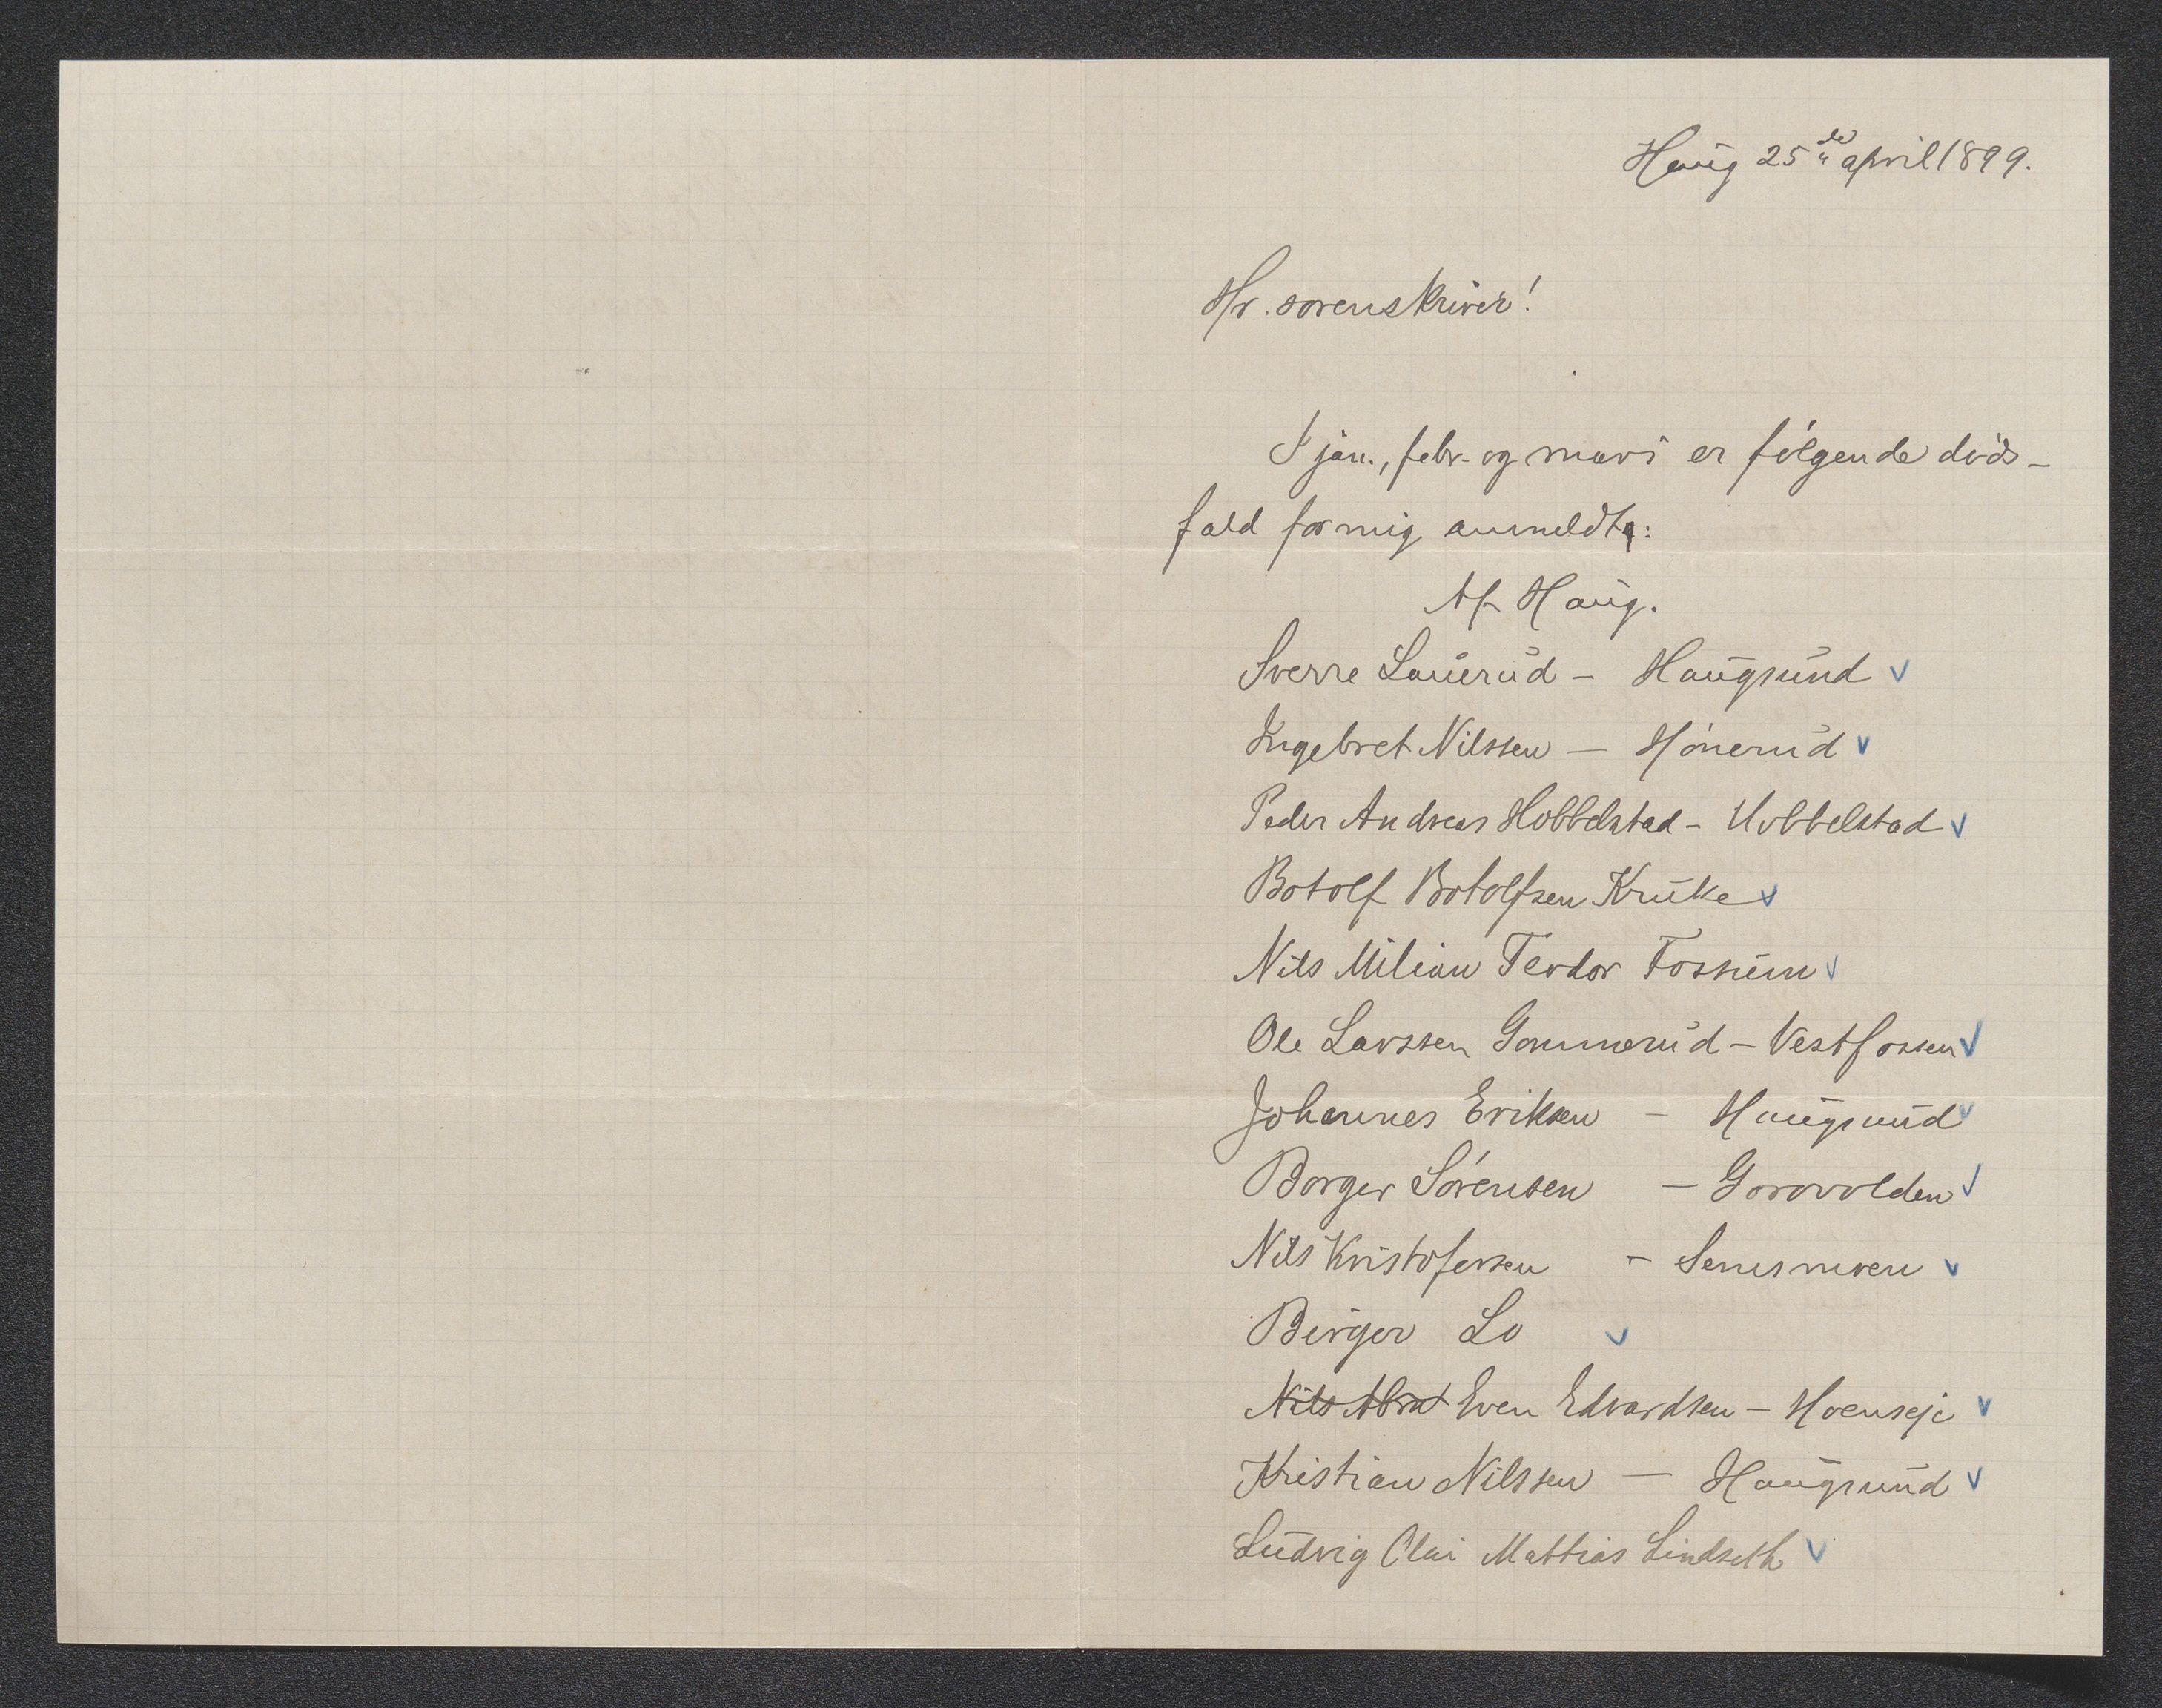 Haug 25de april 1899.
Hr. sorenskriver!
I jan., febr. og mars er følgende døds-
fald for mig anmeldte:
Af Haug.
Sverre Lauerud - Haugsund
Ingebret Nilssen - Hønerud
Peder Andreas Hobbelstad - Hobbelstad
Botolf Botolfsen Kruke
Nils Milian Teodor Fossum
Ole Larssen Gommerud - Vestfossen
Johannes Eriksen - Haugsund
Borger Sørensen - Gorovolden
Nils Kristofersen - Semsmoen
Birger Lo
Nils Abra Even Edvardsen - Hoenseje
Kristian Nilssen - Haugsund
Ludvig Olai Mattias Lindseth